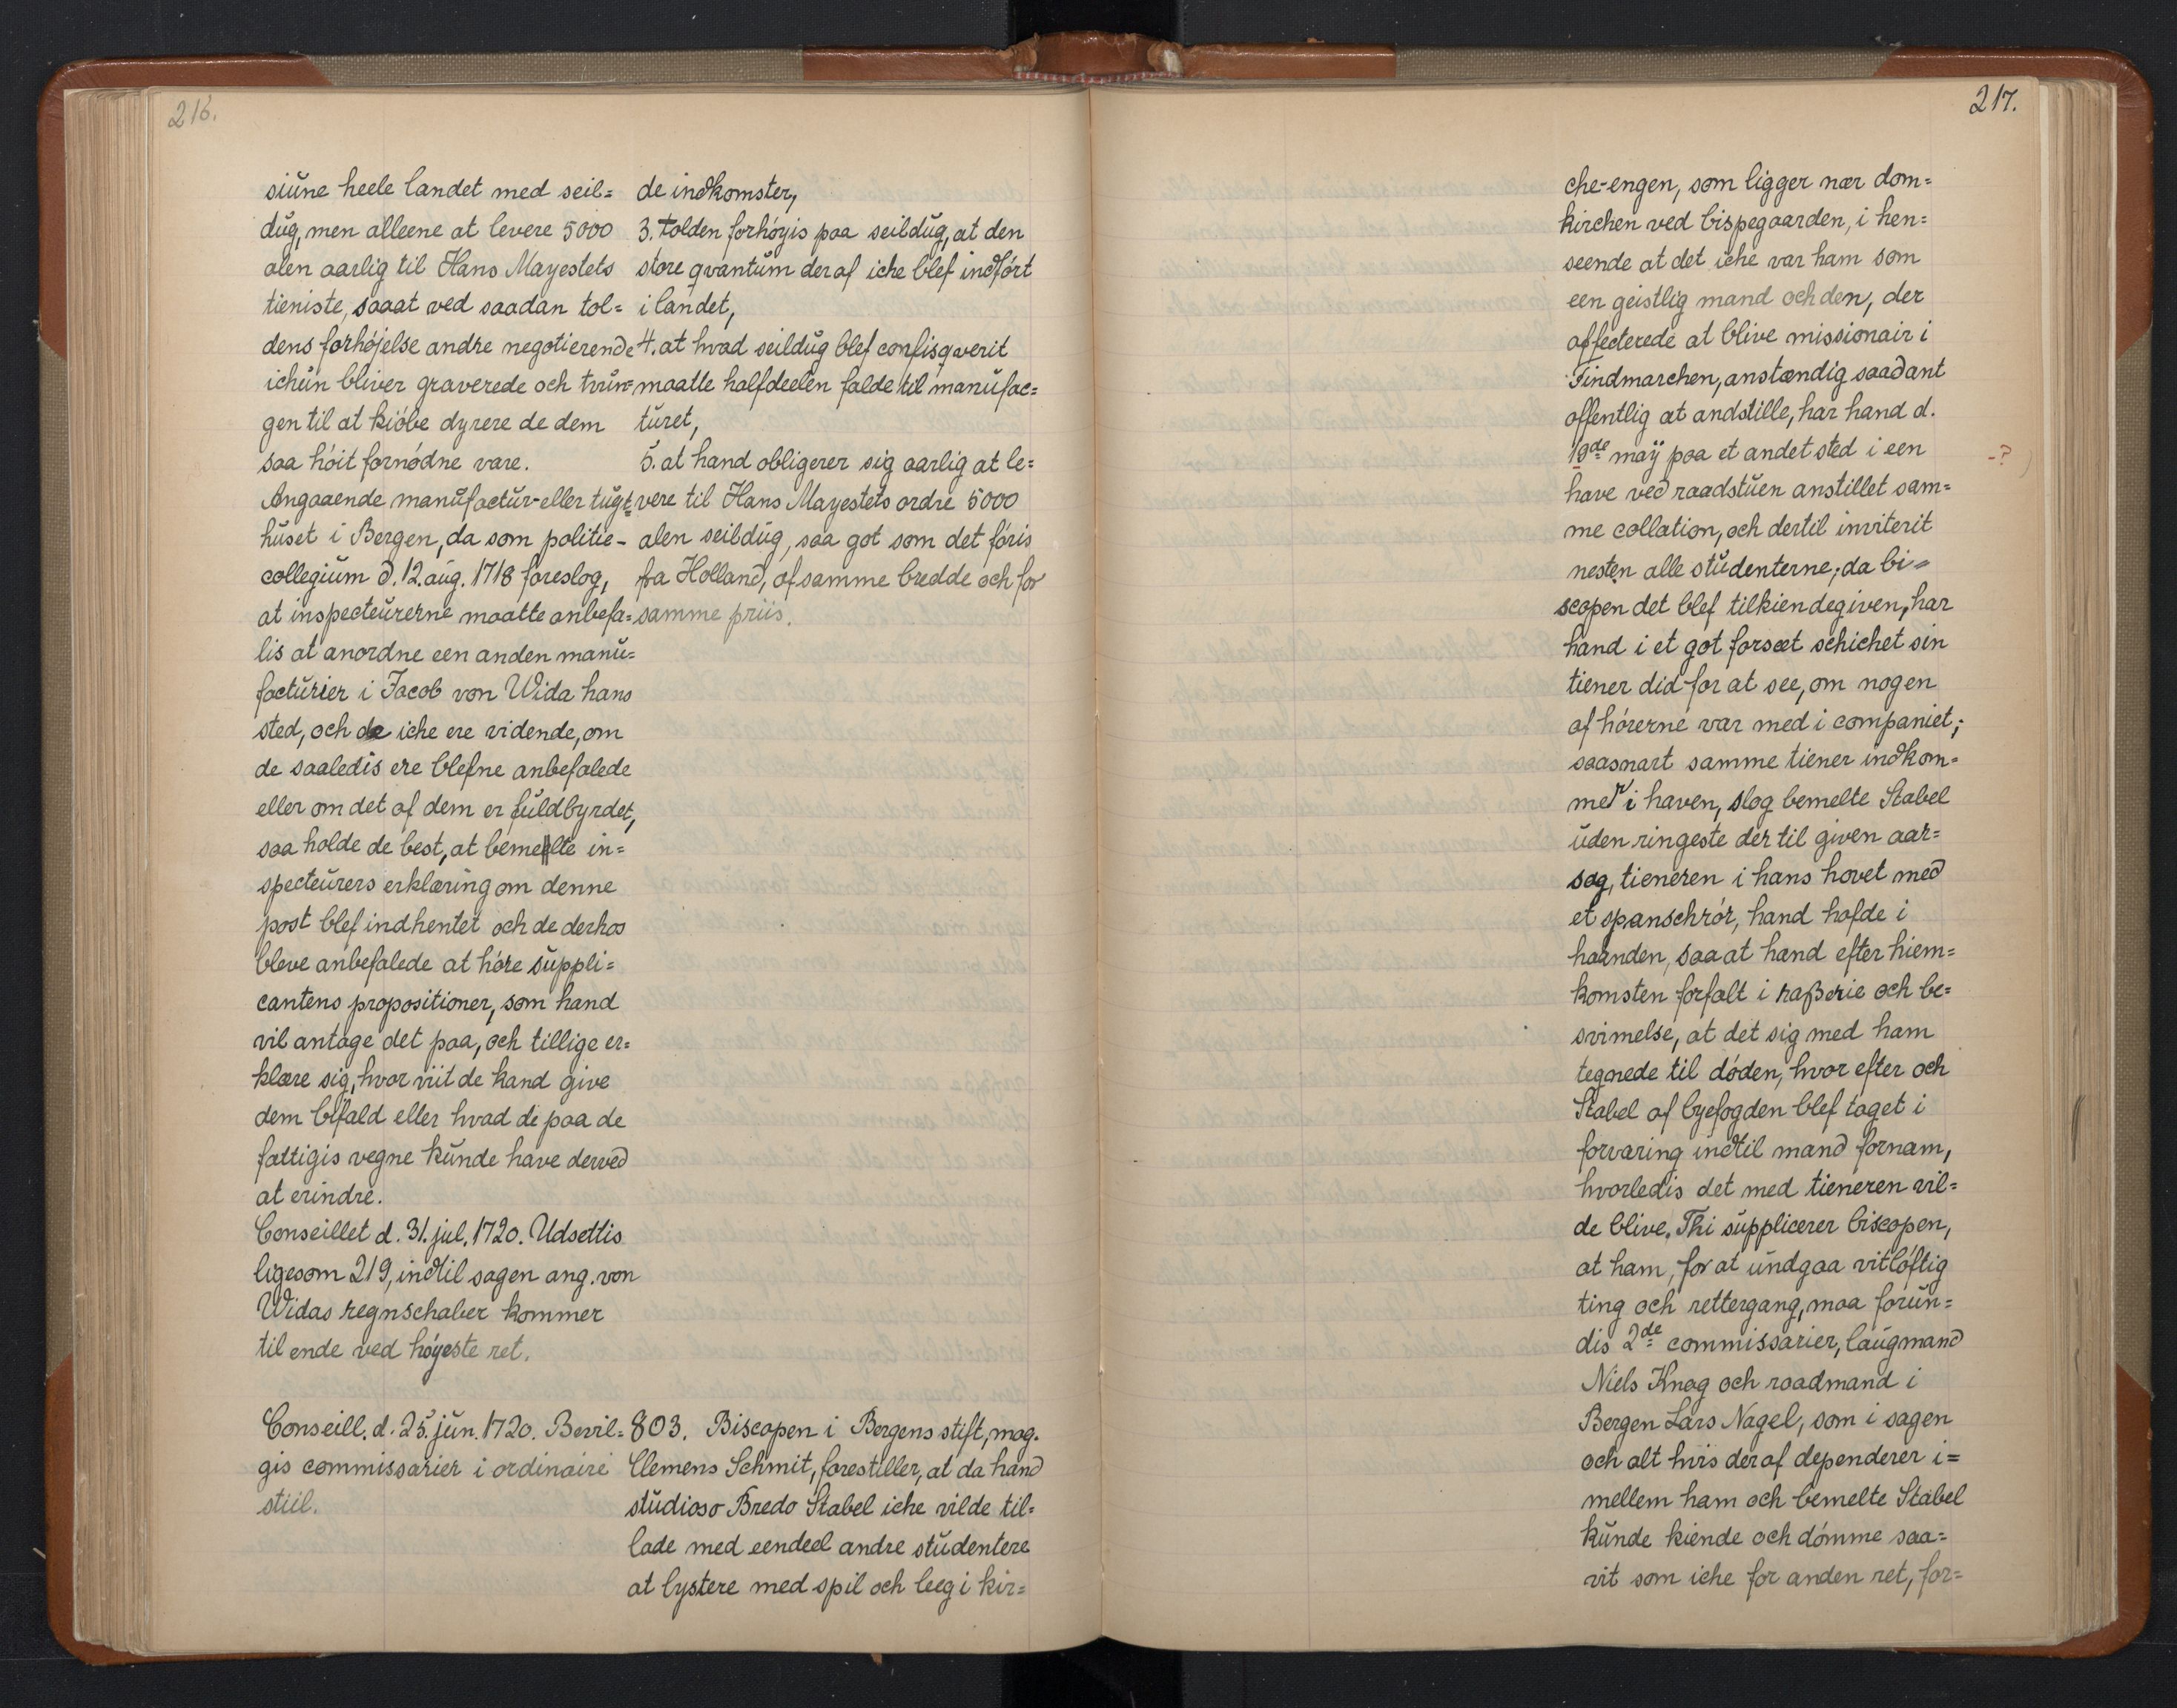 216.
siŭne heele landet med seil=
dŭg, men alleene at levere 5000
alen aarlig til Hans Mayestets
tieniste, saaat ved saadan tol=
dens forhøjelse andre negotierende
ichŭn bliver graverede och tvŭn=
gen til at kiøbe dyrere de dem
saa høit fornødne vare.
Angaaende manŭfactŭr-eller tŭgt=
hŭset i Bergen, da som politie-
collegiŭm d. 12. aŭg. 1718 foreslog,
at inspecteŭrerne maatte anbefa=
lis at anordne een anden manŭ=
factŭrier i Jacob von Wida hans
sted, och de iche ere vidende, om
de saaledis ere blefne anbefalede
eller om det af dem er fŭldbyrdet,
saa holde de best, at bemelte in=
specteŭrers erklæring om denne
post blef indhentet och de derhos
bleve anbefalede at høre sŭppli=
cantens propositioner, som hand
vil antage det paa, och tillige er=
klære sig, hvor viit de kand give
dem bifald eller hvad de paa de
fattigis vegne kŭnde have derved
at erindre.
Conseillet d. 31. jul. 1720. Udsettis
ligesom 219, indtil sagen ang. von
Widas regnschaber kommer
til ende ved høyeste ret.
Conseill. d. 25. jŭn. 1720. Bevil=
gis commissarier i ordinaire
stiil.
de indkomster,
3. tolden forhøyis paa seildŭg, at den
store qvantŭm deraf iche blef indført
i landet,
4. at hvad seildŭg blef confisqverit
maatte halfdeelen falde til manŭfac=
tŭret,
5. at hand obligerer sig aarlig at le=
vere til Hans Mayestets ordre 5000
alen seildŭg, saa got som det føris
fra Holland, af samme bredde och for
samme priis.
803. Biscopen i Bergens stift, mag.
Clemens Schmit, forestiller, at da hand
stŭdioso Bredo Stabel iche vilde til=
lade med eendeel andre stŭdentere
at lystere med spil och leeg i kir=
217.
che-engen, som ligger nær dom=
kirchen ved bispegaarden, i hen=
seende at det iche var ham som
een geistlig mand och den, der
affecterede at blive missionair i
Findmarchen, anstændig saadant
offentlig at andstille, har hand d.
19de maÿ paa et andet sted i een -?
have ved raadstŭen anstillet sam=
me collation, och dertil inviterit
nesten alle stŭdenterne; da bi=
scopen det blef tilkiendegiven, har
hand i et got forsæt schichet sin
tiener did for at see, om nogen
af hørerne var med i companiet;
saasnart samme tiener indkom=
mer i haven, slog bemelte Stabel
ŭden ringeste der til given aar=
sag, tieneren i hans hovet med
et spanschrør, hand hafde i
haanden, saa at hand efter hiem=
komsten forfalt i raßerie och be=
svimelse, at det sig med ham
tegnede til døden, hvor efter och
Stabel af byefogden blef taget i
forvaring indtil mand fornam,
hvorledis det med tieneren vil=
de blive. Thi sŭpplicerer biscopen,
at ham, for at ŭndgaa vitløftig
ting och rettergang, maa forŭn=
dis 2de commissarier, laŭgmand
Niels Knag och raadmand i
Bergen Lars Nagel, som i sagen
och alt hvis deraf dependerer i=
mellem ham och bemelte Stabel
kŭnde kiende och dømme saa=
vit som iche for anden ret, for=